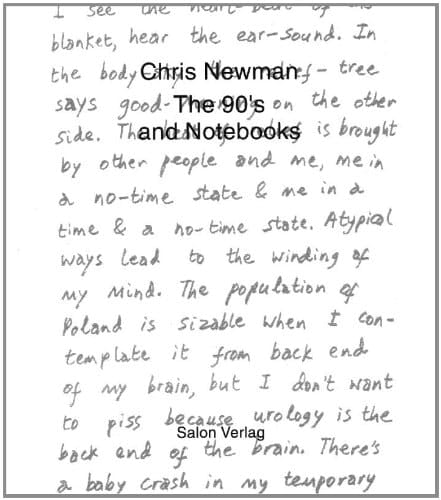 I see the heart-beat of
blanket, hear the ear-sound. In
the body tree
Chris Newman
says good- on the other
The 90's
side. The is brought
and Notebooks
by other people and me, me in
a no-time state & me in a
time & a no-time state. Atypical
ways lead to the winding of
my mind. The population of
Poland is sizable when I con-
template it from back end
of my brain, but I don't want
to piss because urology is the
Salon Verlag
back end of the brain. There's
a baby crash in my temporary